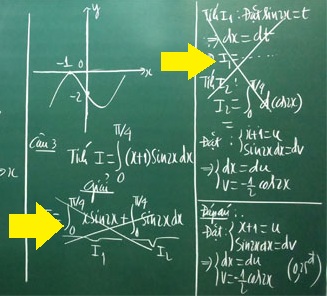 y
-1 0 x
-2
Câu 3 Tính I = ∫₀^{π/4} (x+1) sin2x dx
Giải
= ∫₀^{π/4} x sin2x + ∫₀^{π/4} sin2x dx
I₁ I₂
Tính I₁: Đặt sin2x = t
⇒ dx = dt
I₁ =
Tính I₂:
I₂ = ∫₀^{π/4} d(cos2x)
=
Đặt: { x+1 = u
sin2x dx = dv
⇒ { dx = du
v = -1/2 cos2x
Đáp án:
Đặt: { x+1 = u
sin2x dx = dv
⇒ { dx = du
v = -1/2 cos2x (0,25đ)
x